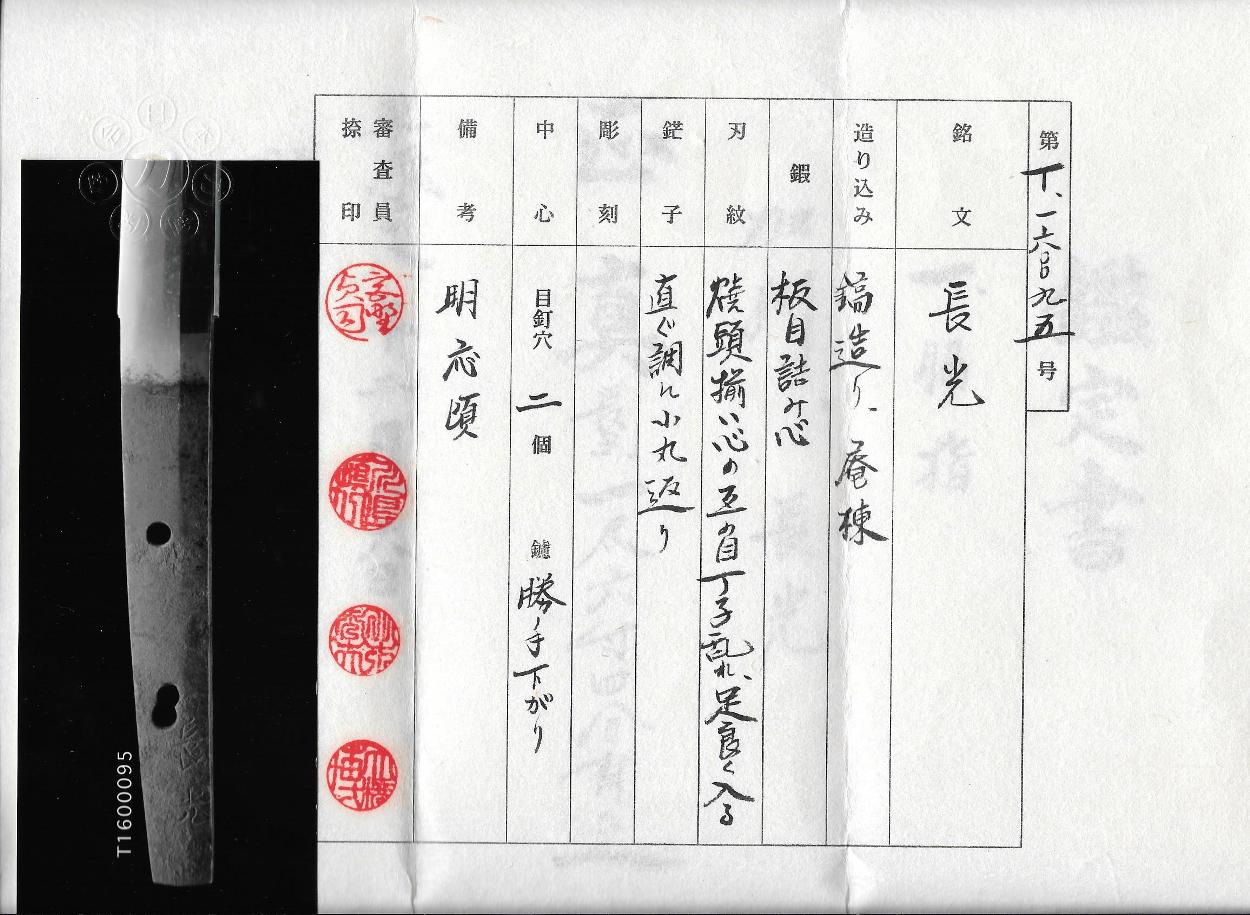 第T、一六〇〇九五号
銘文
長光
造り込み
鎬造り、庵棟
鍜
板目詰み心
刃紋
焼頭揃い心の互の目丁子乱れ、足良く入る
鋩子
直ぐ調に小丸返り
彫刻
中心
目釘穴 二 個 鑢 勝手下がり
備考
明応頃
審査員
捺印
T1600095